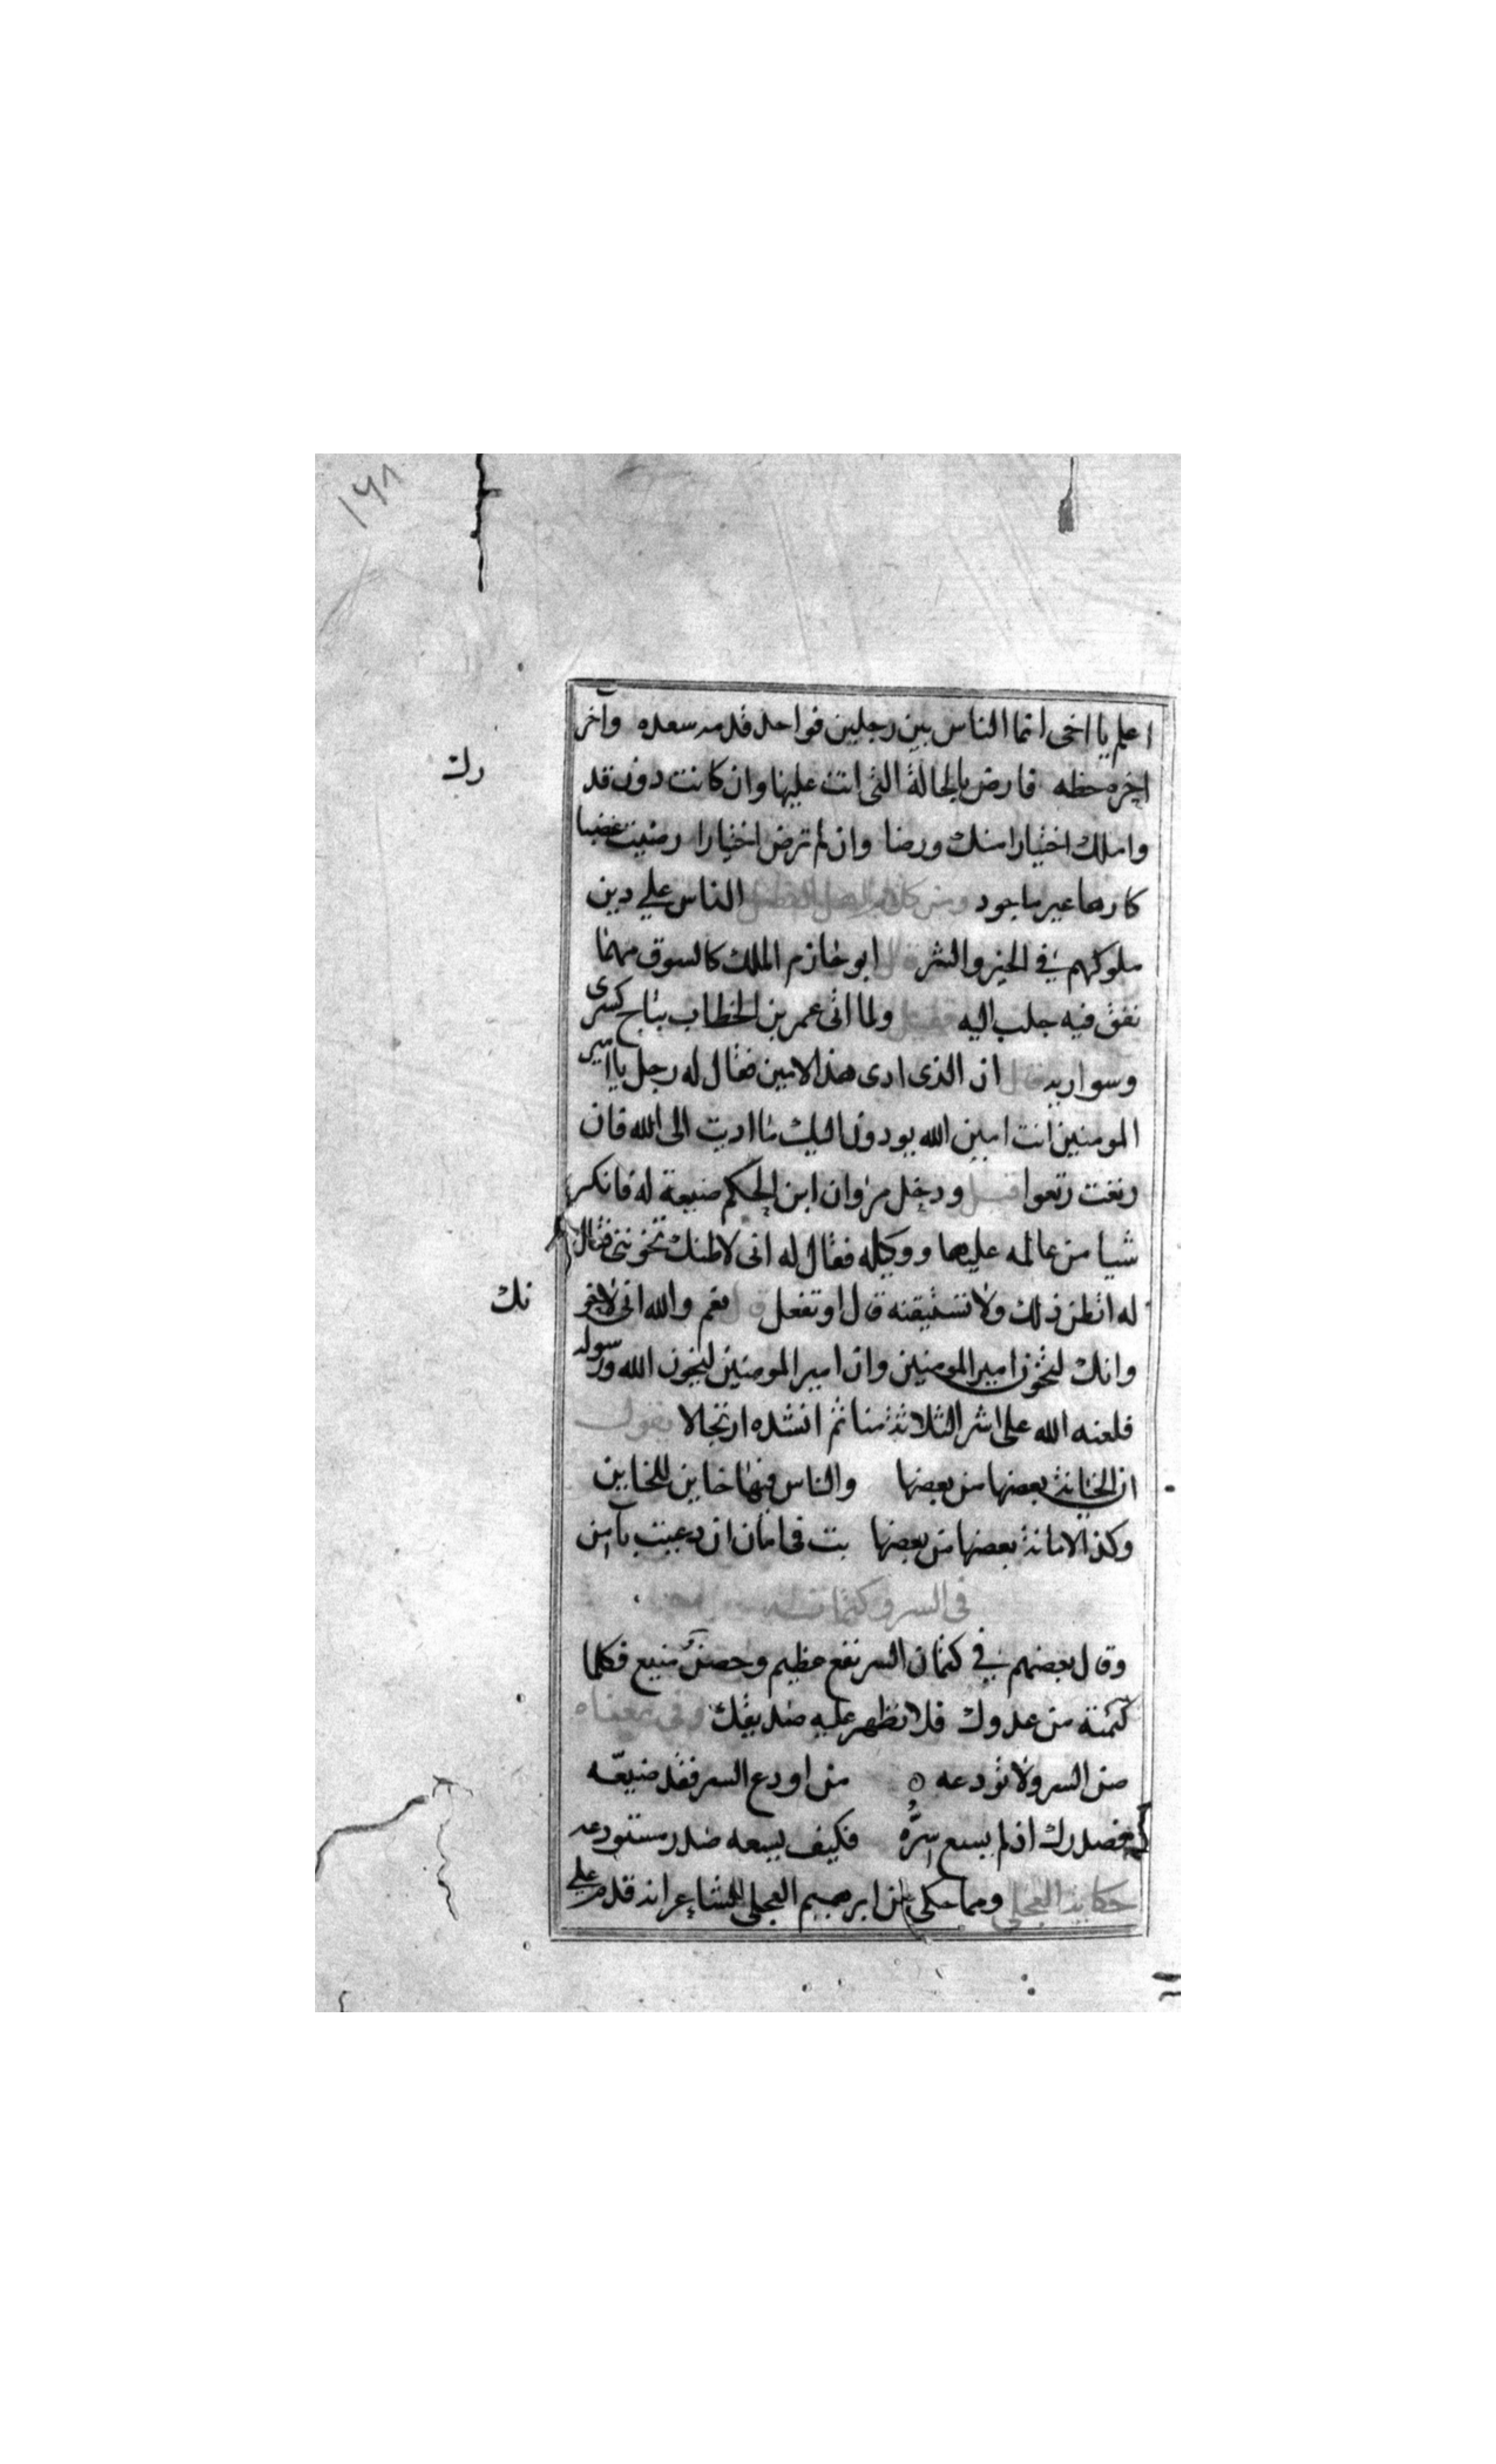 ١٦٨
اعلم يا اخى انما الناس بين رجلين فواحد قدمه سعده واخر
اخره حظه فارض بالحالة التى انت عليها وان كانت دون قد
رك
واملك اختيارا منك ورضا وان لم ترض اختيارا رضيت غضبا
كارها غير ماجود ومن كلام الناس على دين
ملوكهم في الخير والشر قال ابو خازم الملك كالسوق مهما
نفق فيه جلب اليه ولما اتى عمر بن الخطاب بتاج كسرى
وسواريه قال ان الذى ادى هذا لامين فقال له رجل يا امير
المومنين انت امين الله يودون اليك ما اديت الى الله فان
رتعت رتعوا قيل ودخل مروان ابن الحكم ضيعة له فانكر
شيا من عالمه عليها ووكيله فقال له انى لاظنك تخوننى فقال
له اتظن ذلك ولا تستيقنه قال او تفعل قال نعم والله انى لاخو
نك
وانك لتخون امير المومنين وان امير المومنين ليخون الله ورسوله
فلعنه الله على اشر الثلاثة منا ثم انشده ارتجالا يقول
ان الخيانة بعضها من بعضها والناس فيها خاين للخاين
وكذ الامانة بعضها من بعضها بت فى امان ان دعيت بآمن
فى السر وكتمانه
وقال بعضهم في كتمان السر نفع عظيم وحصن منيع فكلما
كتمته من عدوك فلا تظهر عليه صديقك وفى معناه
صن السر ولا تودعه من اودع السر فقد ضيعه
فصدرك اذ لم يسع سره فكيف يسعه صدر مستودعه
حكاية العجلى ومما حكى عن ابرهيم العجلى الشاعر انه قدم على